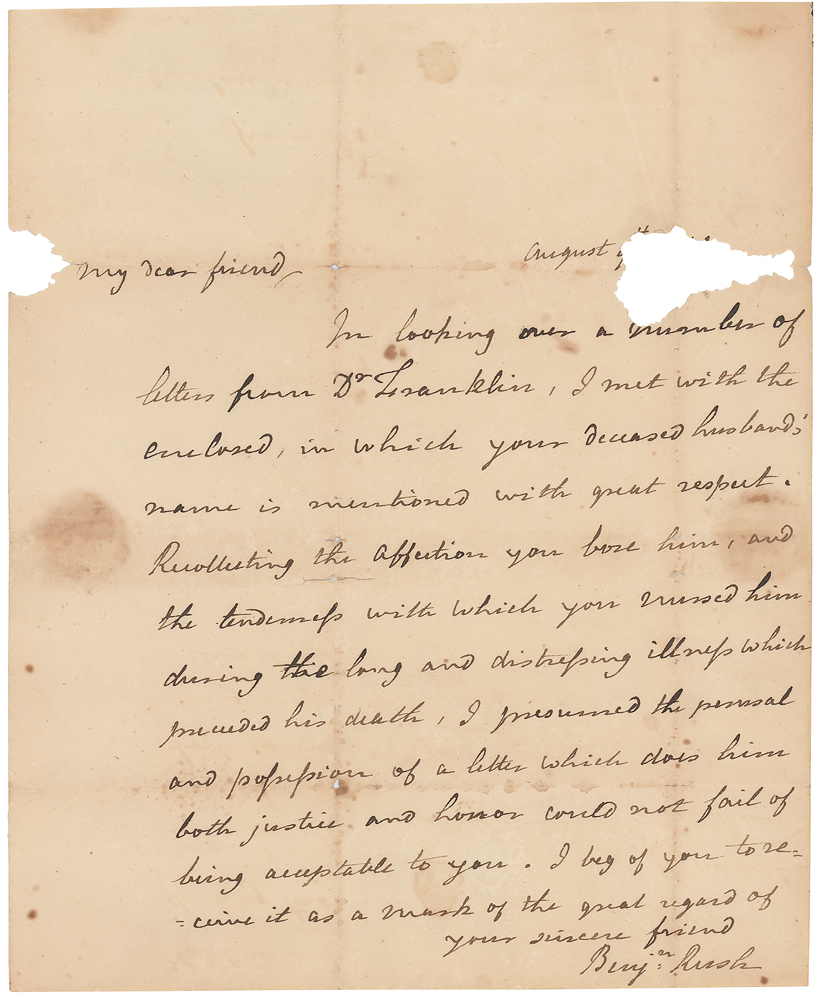 August
My dear friend
In looking over a number of
letters from Dr Franklin, I met with the
enclosed, in which your deceased husbands'
name is mentioned with great respect.
Recollecting the affection you bore him, and
the tenderness with which you nursed him
during the long and distressing illness which
preceeded his death, I presumed the perusal
and possession of a letter which does him
both justice and honor could not fail of
being acceptable to you. I beg of you to re=
=ceive it as a mark of the great regard of
your sincere friend
Benjn: Rush